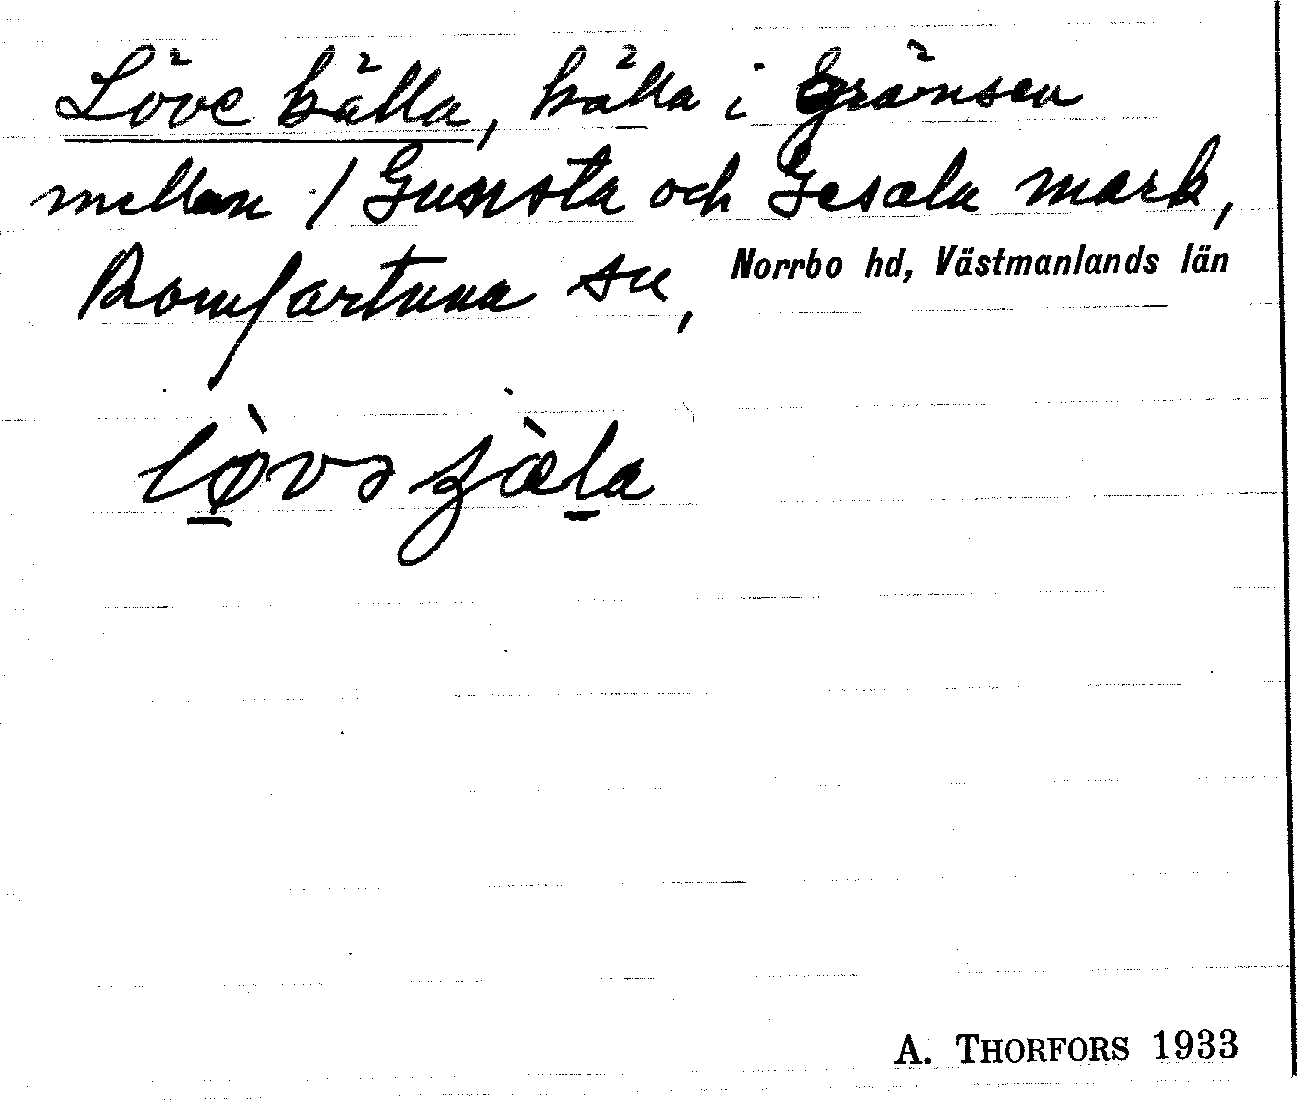 Löve källa, källa i gränsen
mellan / Gunsta och Gesala mark,
Romfartuna sn, Norrbo hd, Västmanlands län
A. THORFORS 1933